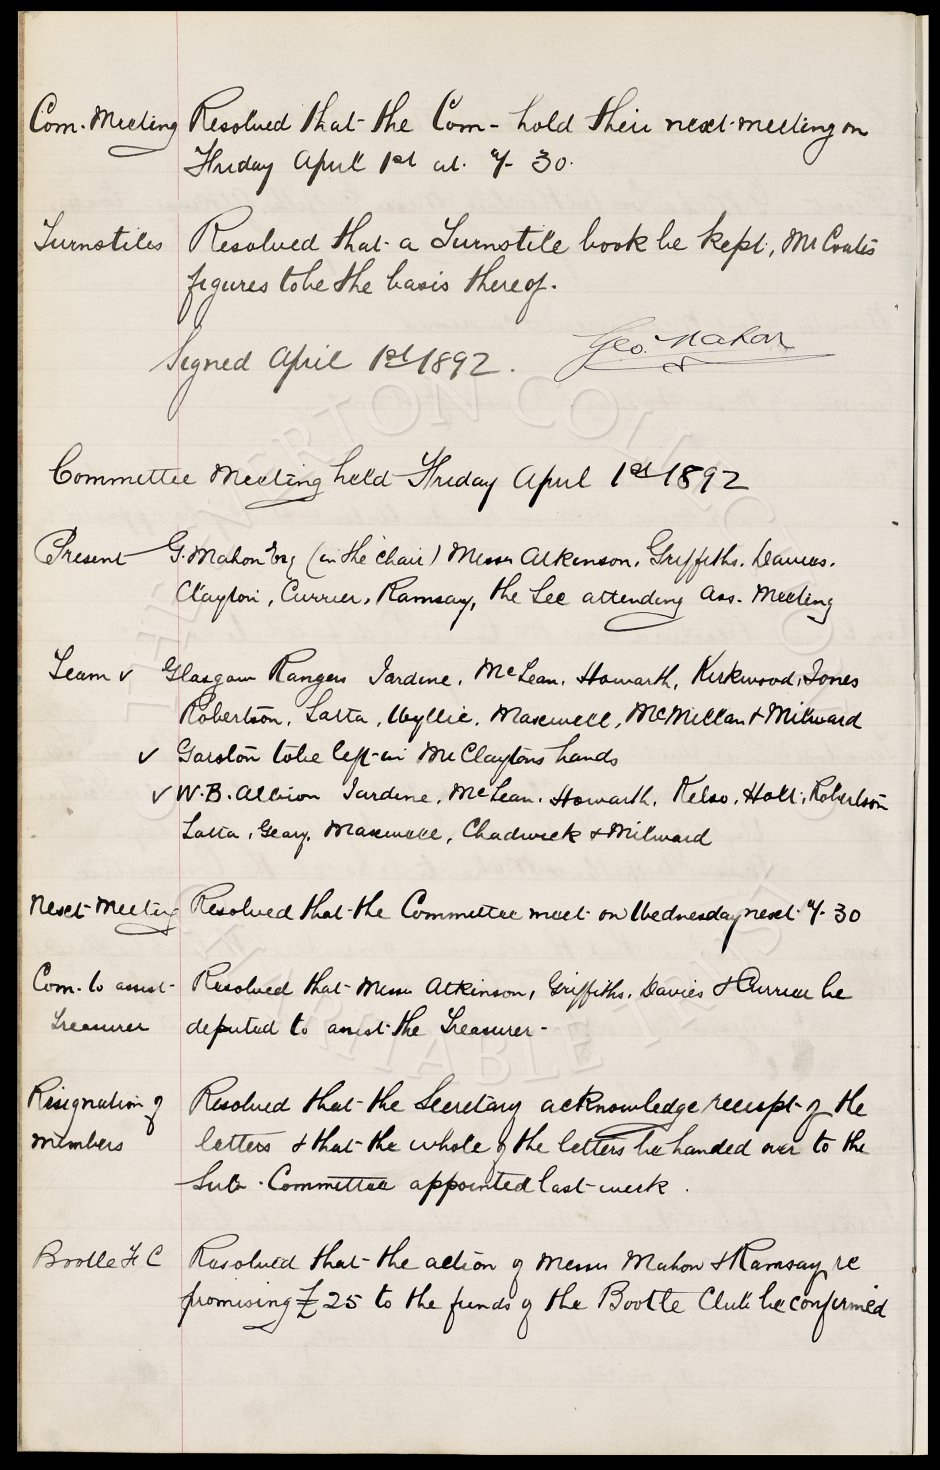 Com. Meeting Resolved that the Com- hold their next meeting on
Friday April 1st at 7-30.
Turnstiles Resolved that a Turnstile book be kept, Mr Coates
figures to be the basis thereof.
Signed April 1st 1892. Geo. Mahon
Committee Meeting held Friday April 1st 1892
Present G. Mahon Esq (in the chair) Messrs Atkinson, Griffiths. Davies.
Clayton, Currier, Ramsay, the Sec attending Ass. Meeting
Team v Glasgow Rangers Jardine, McLean, Howarth, Kirkwood, Jones
Robertson, Latta, Wyllie, Maxwell, McMillan & Milward
v Garston to be left in Mr Claytons hands
v W.B. Albion Jardine, McLean, Howarth, Kelso, Holt, Robertson
Latta, Geary, Maxwell, Chadwick & Milward
Next Meeting Resolved that the Committee meet on Wednesday next 7-30
Com. to assist Resolved that Messrs Atkinson, Griffiths, Davies & Currier be
Treasurer deputed to assist the Treasurer-
Resignation of Resolved that the Secretary acknowledge receipt of the
members letters & that the whole of the letters be handed over to the
Sub-Committee appointed last week.
Bootle F C Resolved that the action of Messrs Mahon & Ramsay re
promising £25 to the funds of the Bootle Club be confirmed
THE EVERTON COLLECTION
CHARITABLE TRUST